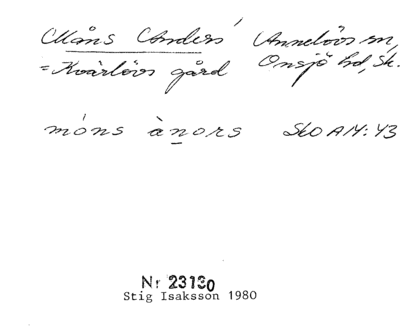 Måns Anders' Annelövs sn,
=Kvärlövs gård Onsjö hd, Sk.
móns ànors SkO AM: 43
Nr 23130
Stig Isaksson 1980